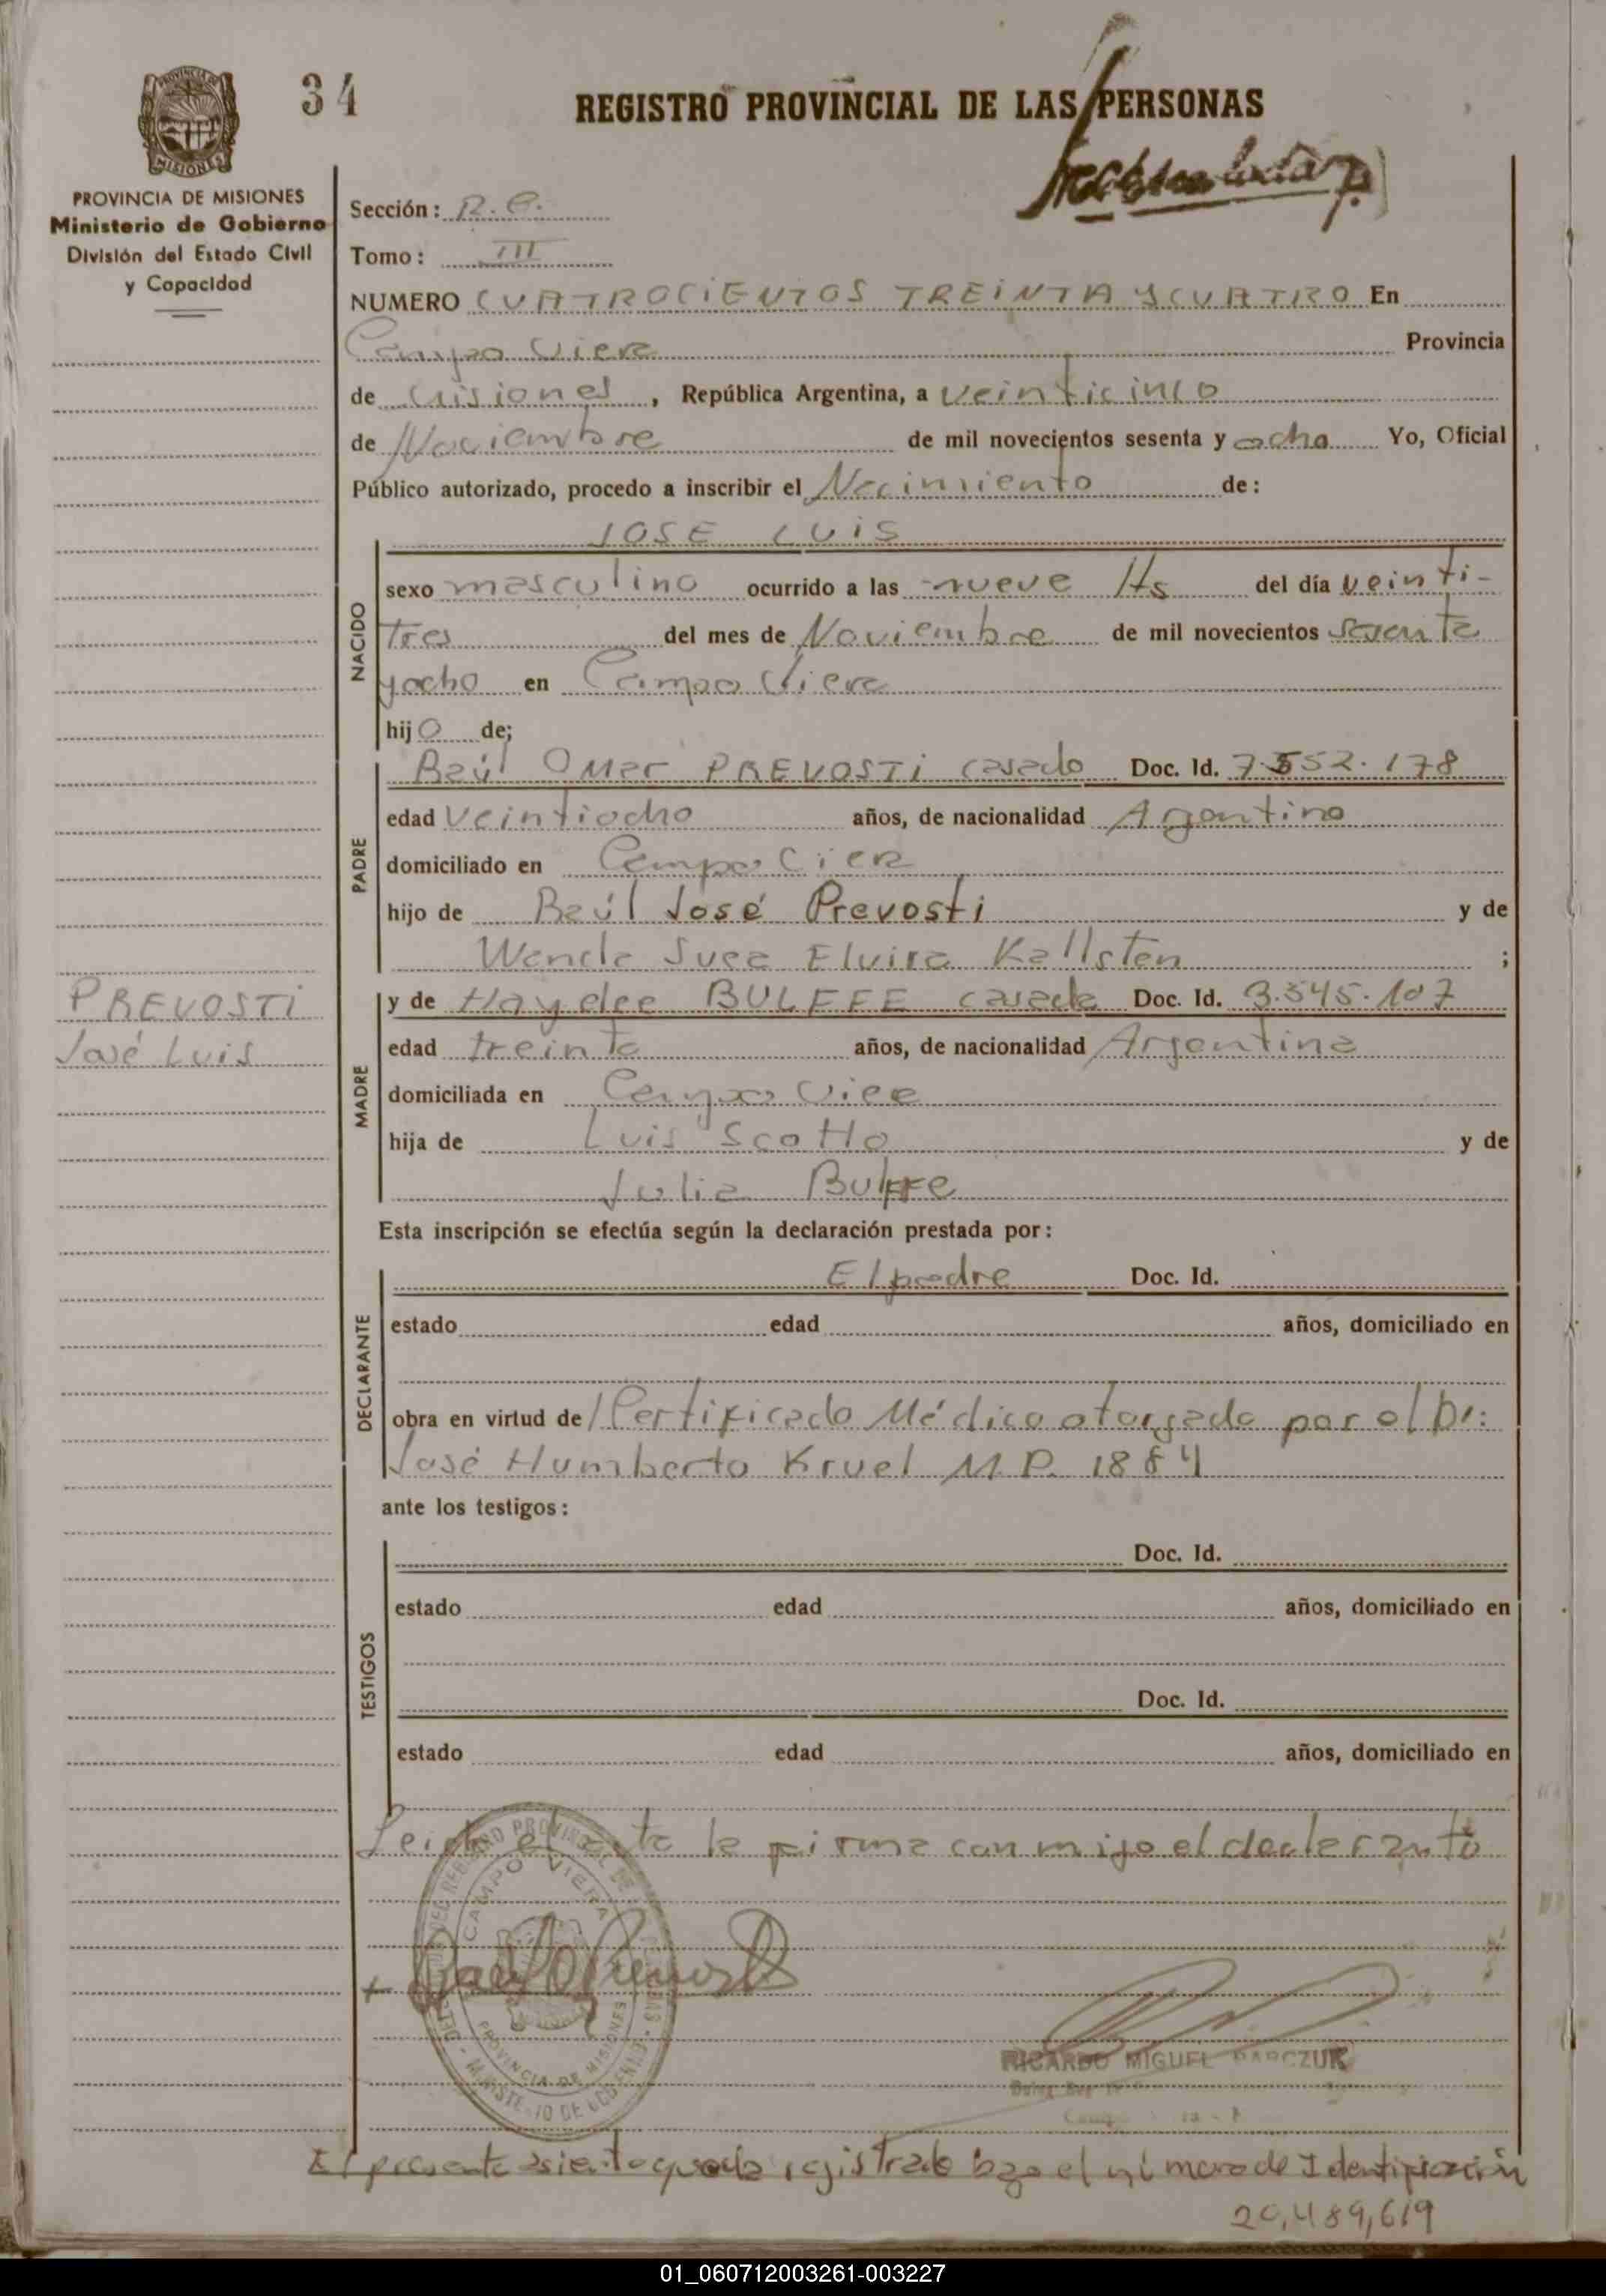 34
REGISTRO PROVINCIAL DE LAS PERSONAS
PROVINCIA DE MISIONES
MISIONES
PROVINCIA DE MISIONES
Ministerio de Gobierno
División del Estado Civil
y Capacidad
Sección: R.C.
Tomo: III
NUMERO CUATROCIENTOS TREINTA Y CUATRO En
Campo Viera Provincia
de Misiones, República Argentina, a veinticinco
de Noviembre de mil novecientos sesenta y ocho Yo, Oficial
Público autorizado, procedo a inscribir el Nacimiento de:
JOSE LUIS
NACIDO
sexo masculino ocurrido a las nueve Hs del día veinti-
tres del mes de Noviembre de mil novecientos sesenta
yocho en Campo Viera
hijo de;
PADRE
Raúl Omar PREVOSTI casado Doc. Id. 7.552.178
edad veintiocho años, de nacionalidad Argentino
domiciliado en Campo Viera
hijo de Raúl José Prevosti y de
Wanda Svea Elvira Kallsten ;
PREVOSTI
José Luis
MADRE
y de Haydee BULFFE casada Doc. Id. 3.545.107
edad treinta años, de nacionalidad Argentina
domiciliada en Campo Viera
hija de Luis Scotto y de
Julia Bulffe
Esta inscripción se efectúa según la declaración prestada por:
DECLARANTE
El padre Doc. Id.
estado edad años, domiciliado en
obra en virtud de/ Certificado Médico otorgado por el Dr:
José Humberto Kruel M.P. 1884
ante los testigos:
TESTIGOS
Doc. Id.
estado edad años, domiciliado en
Doc. Id.
estado edad años, domiciliado en
Leida el acta la firma conmigo el declarante
CAMPO VIERA
PROVINCIA DE MISIONES
RICARDO MIGUEL PARCZUK
El presente asiento queda registrado bajo el número de Identificación
20,489,619
01_060712003261-003227